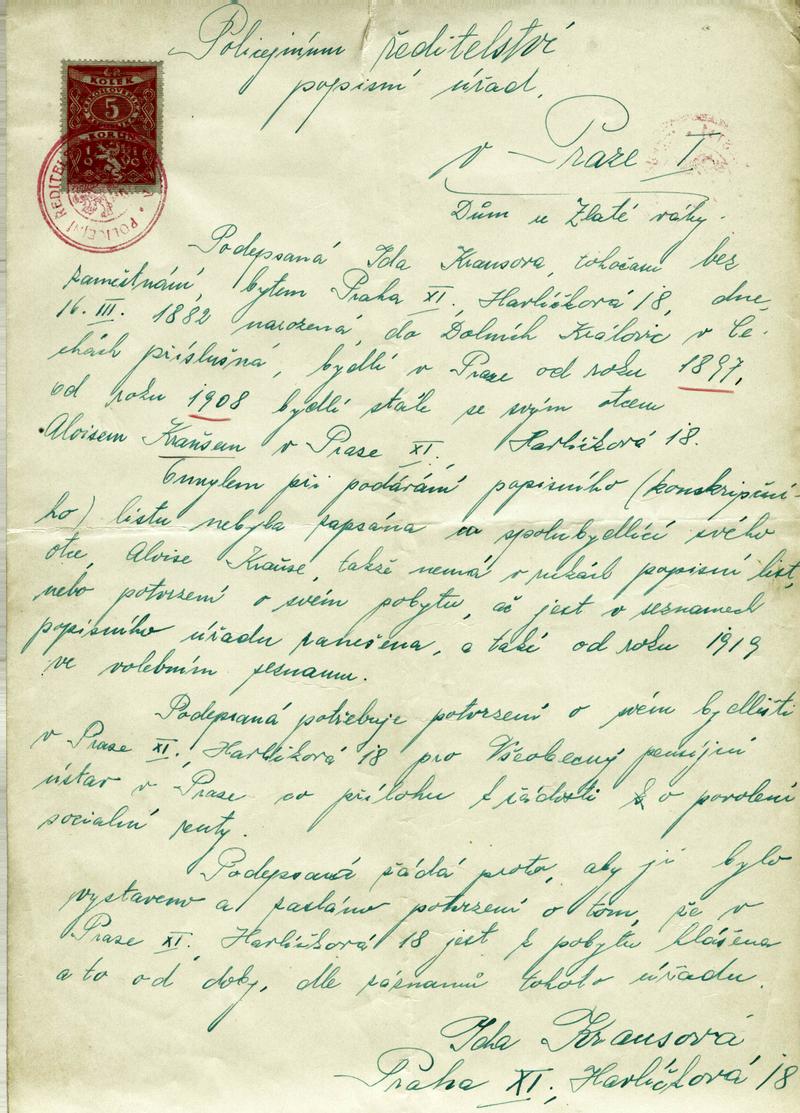 Policejnímu ředitelství
popisní úřad,
KOLEK
5
v Praze I
Dům u Zlaté váhy.
POLICEJNÍ ŘEDITEL
Podepsaná Ida Krausová, tohočasu bez
zaměstnání, bytem Praha XI, Havlíčková 18, dne
16. III. 1882 narozená, do Dolních Královic v Če-
chách příslušná, bydlí v Praze od roku 1897,
od roku 1908 bydlí stále se svým otcem
Aloisem Kraußem v Praze XI, Havlíčková 18.
Omylem při podávání popisního (konskripční-
ho) listu nebyla zapsána co spolubydlící svého
otce, Aloise Krauße, takže nemá v rukách popisní list,
nebo potvrzení o svém pobytu, ač jest v seznamech
popisního úřadu zanešena, a také od roku 1919
ve volebním seznamu.
Podepsaná potřebuje potvrzení o svém bydlišti
v Praze XI, Havlíčková 18 pro Všeobecný pensijní
ústav v Praze co přílohu k žádosti o povolení
socialní renty.
Podepsaná žádá proto, aby jí bylo
vystaveno a zasláno potvrzení o tom, že v
Praze XI, Havlíčková 18 jest k pobytu hlášena
a to od doby, dle záznamů tohoto úřadu.
Ida Krausová
Praha XI, Havlíčková 18